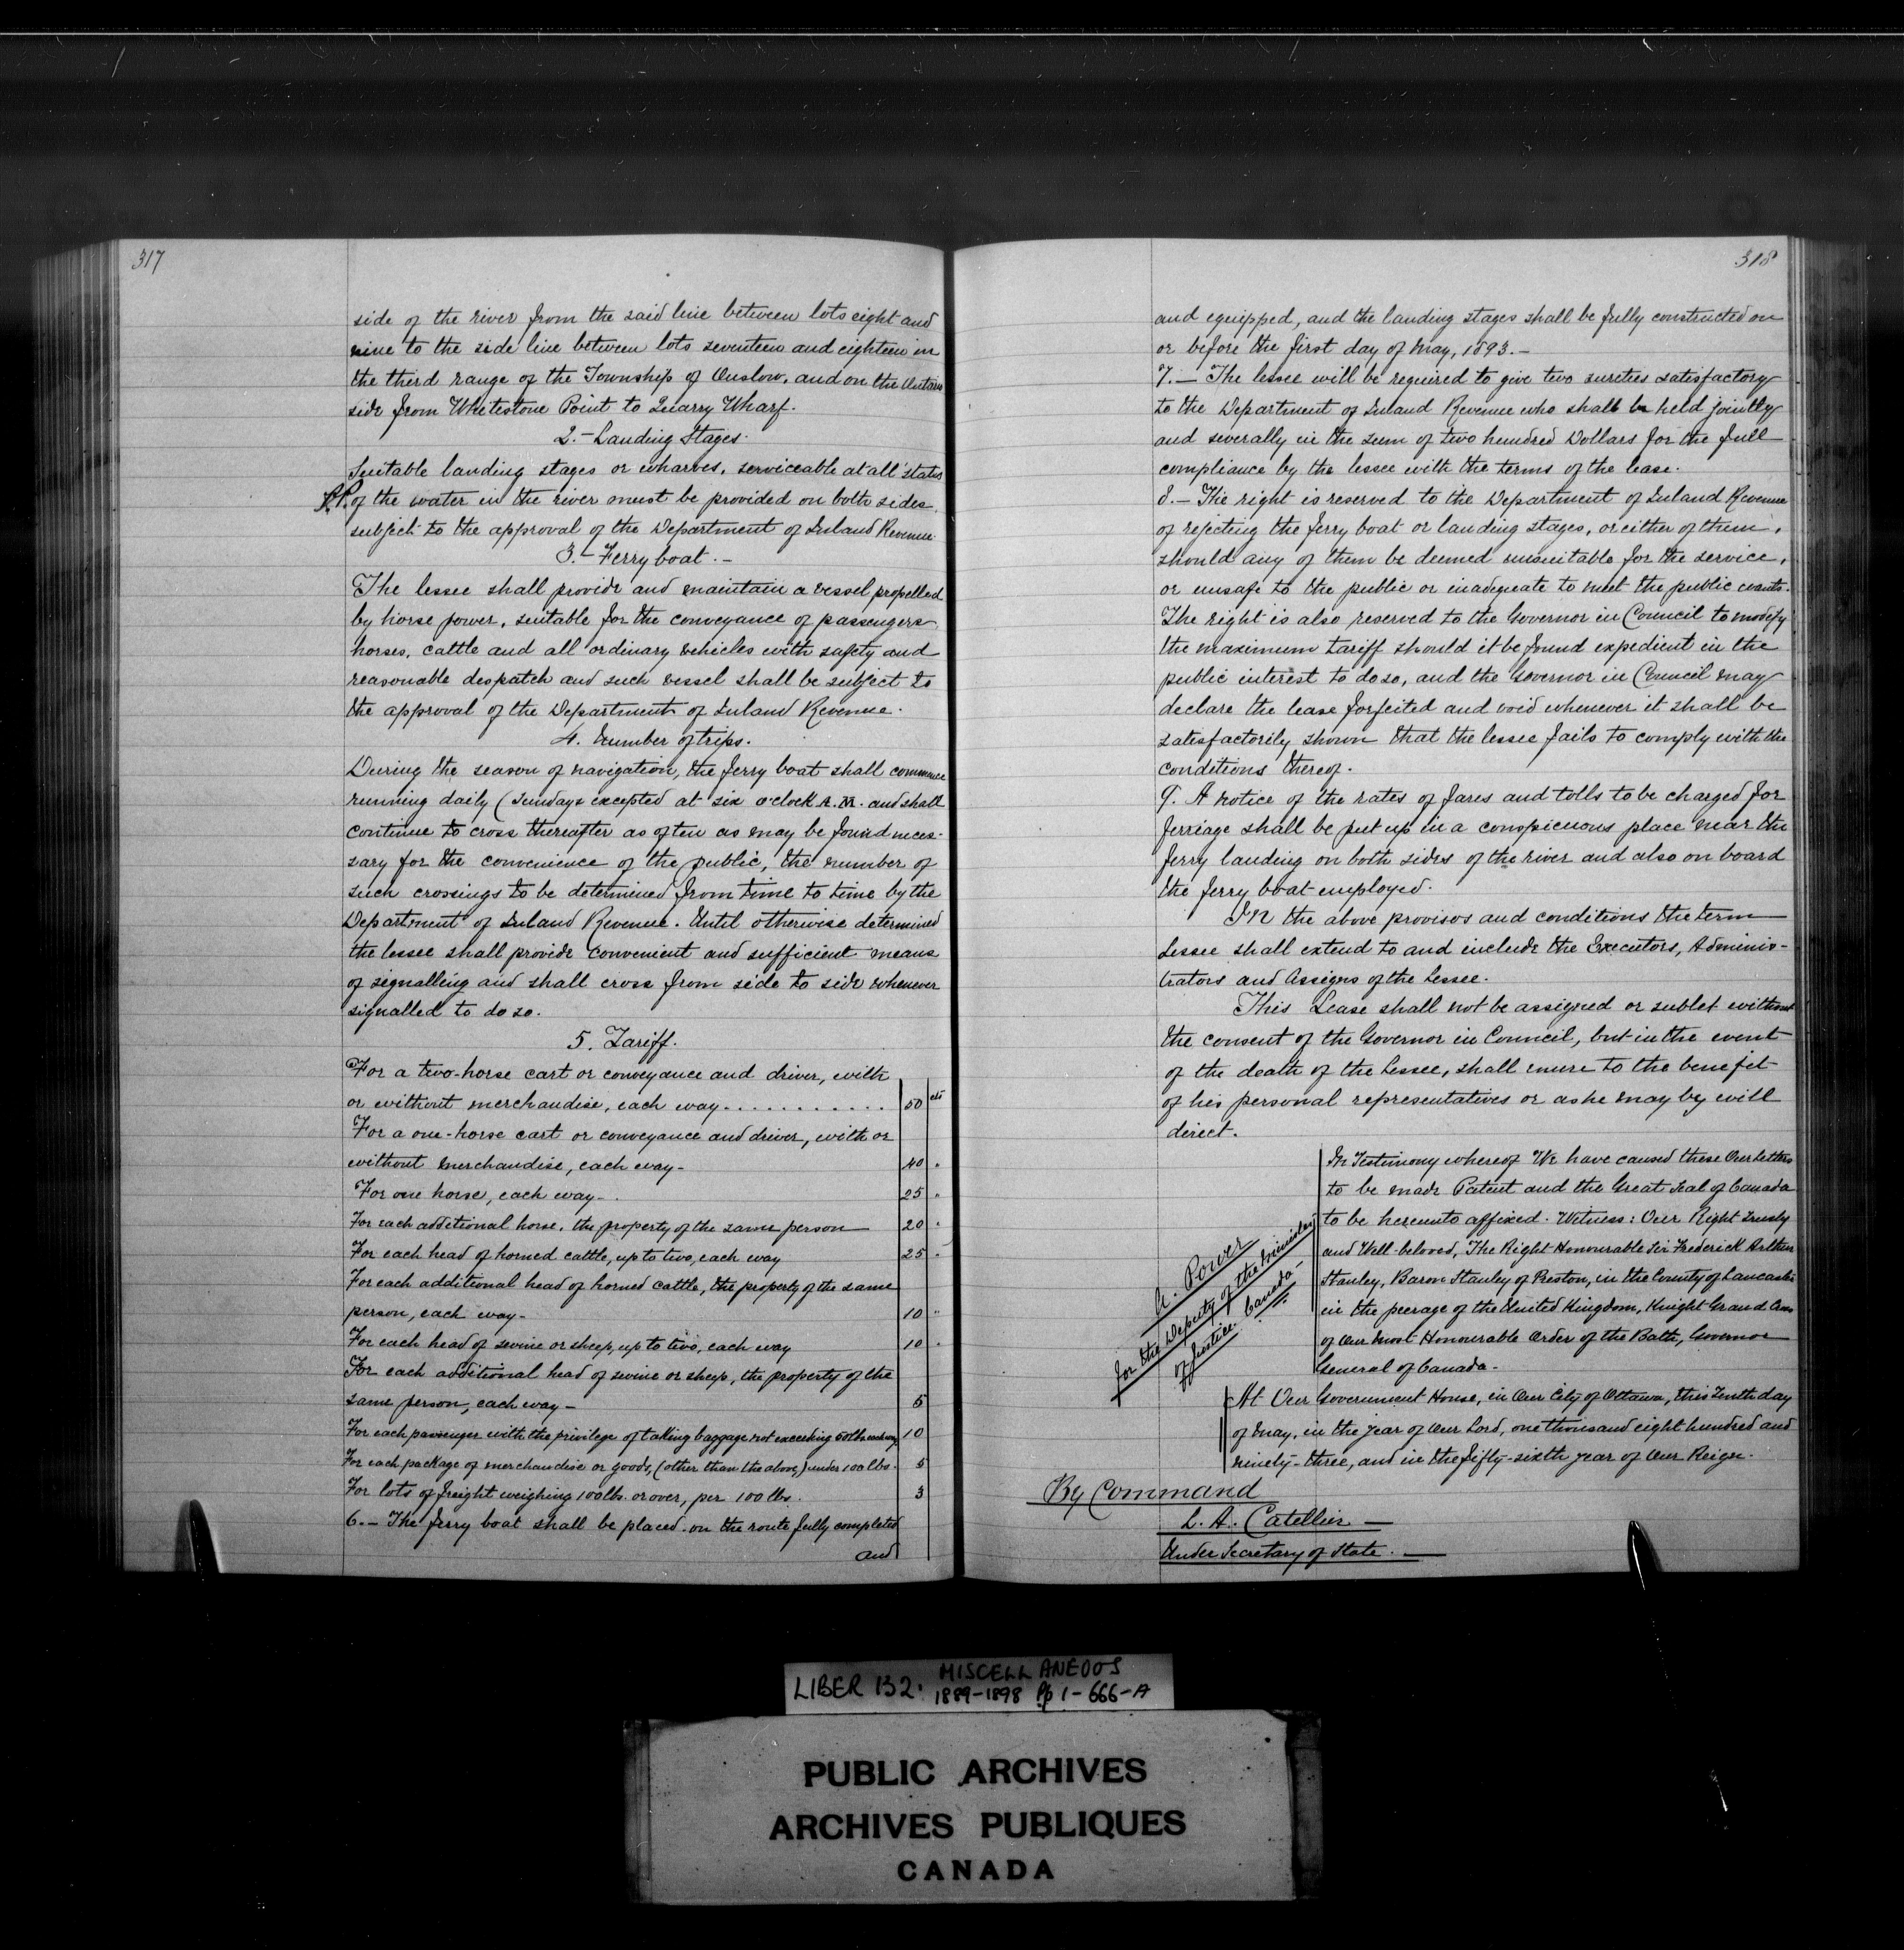 317
side of the river from the said line between lots eight and
nine to the side line between lots seventeen and eighteen in
the third range of the Township of Onslow, and on the Ontario
side from Whitestone Point to Quarry Wharf.
2.- Landing Stages.
Suitable landing stages or wharves, serviceable at all states
of the water in the river must be provided on both sides,
subject to the approval of the Department of Inland Revenue.
3.- Ferry boat.-
The lessee shall provide and maintain a vessel propelled
by horse power, suitable for the conveyance of passengers,
horses, cattle and all ordinary vehicles with safety and
reasonable despatch and such vessel shall be subject to
the approval of the Department of Inland Revenue.
4. Number of trips.
During the season of navigation, the ferry boat shall commence
running daily (Sundays excepted at six o'clock A.M. and shall
continue to cross thereafter as often as may be found neces-
sary for the convenience of the public, the number of
such crossings to be determined from time to time by the
Department of Inland Revenue. Until otherwise determined
the lessee shall provide convenient and sufficient means
of signalling and shall cross from side to side whenever
signalled to do so.
5. Tariff.
For a two-horse cart or conveyance and driver, with
or without merchandise, each way............ 50 cts
For a one-horse cart or conveyance and driver, with or
without merchandise, each way- 40 "
For one horse, each way-. 25 "
For each additional horse, the property of the same person 20 "
For each head of horned cattle, up to two, each way 25 "
For each additional head of horned cattle, the property of the same
person, each way- 10 "
For each head of swine or sheep, up to two, each way 10 "
For each additional head of swine or sheep, the property of the
same person, each way- 5
For each passenger with the privilege of taking baggage not exceeding 50lbs each way 10
For each package of merchandise or goods, (other than the above,) under 100 lbs. 5
For lots of freight weighing 100 lbs. or over, per 100 lbs. 3
6.- The ferry boat shall be placed on the route fully completed
and
318
and equipped, and the landing stages shall be fully constructed on
or before the first day of May, 1893.-
7.- The lessee will be required to give two sureties satisfactory
to the Department of Inland Revenue who shall be held jointly
and severally in the sum of two hundred Dollars for the full
compliance by the lessee with the terms of the lease.
8.- The right is reserved to the Department of Inland Revenue
of rejecting the ferry boat or landing stages, or either of them,
should any of them be deemed unsuitable for the service,
or unsafe to the public or inadequate to meet the public wants.
The right is also reserved to the Governor in Council to modify
the maximum tariff should it be found expedient in the
public interest to do so, and the Governor in Council may
declare the lease forfeited and void whenever it shall be
satisfactorily shown that the lessee fails to comply with the
conditions thereof.
9. A notice of the rates of fares and tolls to be charged for
ferriage shall be put up in a conspicuous place near the
ferry landing on both sides of the river and also on board
the ferry boat employed.
In the above provisos and conditions the term
Lessee shall extend to and include the Executors, Adminis-
trators and Assigns of the Lessee.
This Lease shall not be assigned or sublet without
the consent of the Governor in Council, but in the event
of the death of the Lessee, shall enure to the benefit
of his personal representatives or as he may by will
direct.
A. Power
for the Deputy of the Minister
of Justice. Canada-
In Testimony whereof We have caused these Our Letters
to be made Patent and the Great Seal of Canada
to be hereunto affixed. Witness: Our Right Trusty
and Well-beloved, The Right Honourable Sir Frederick Arthur
Stanley, Baron Stanley of Preston, in the County of Lancaster
in the peerage of the United Kingdom, Knight Grand Cross
of Our Most Honourable Order of the Bath, Governor
General of Canada-
At Our Government House, in Our City of Ottawa, this Tenth day
of May, in the year of Our Lord, one thousand eight hundred and
ninety-three, and in the fifty-sixth year of Our Reign.
By Command
L. A. Catellier
Under Secretary of State.
LIBER 132. MISCELLANEOUS
1889-1898 Pp 1-666-A
PUBLIC ARCHIVES
ARCHIVES PUBLIQUES
CANADA